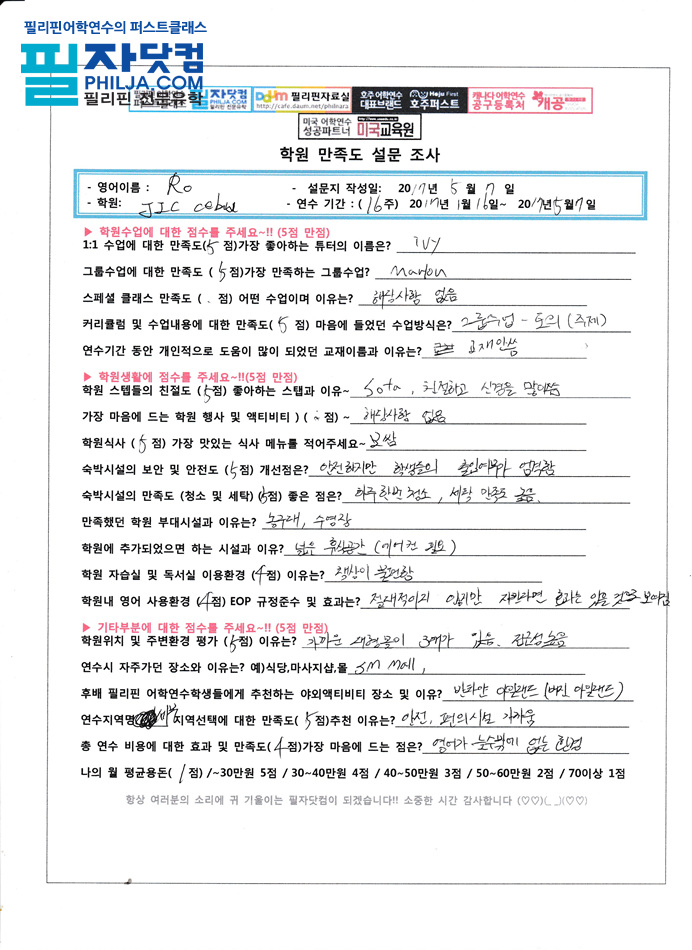 필리핀어학연수의 퍼스트클래스
필자닷컴
PHILJA.COM
필리핀 전문유학
필자닷컴 PHILJA.COM 필리핀 전문유학 Daum 필리핀자료실 http://cafe.daum.net/philnara 호주 어학연수 대표브랜드 Hoju First 호주퍼스트 캐나다 어학연수 공구등록처 캐공
미국 어학연수 성공파트너 미국교육원
학원 만족도 설문 조사
- 영어이름 : Ro - 설문지 작성일: 2017년 5월 7일
- 학원: JIC cebu - 연수 기간 : (16주) 2017년 1월 16일~ 2017년 5월 7일
▶ 학원수업에 대한 점수를 주세요~!! (5점 만점)
1:1 수업에 대한 만족도(5 점)가장 좋아하는 튜터의 이름은? IVY
그룹수업에 대한 만족도 (5점)가장 만족하는 그룹수업? Marlon
스페셜 클래스 만족도 ( . 점) 어떤 수업이며 이유는? 해당사항 없음
커리큘럼 및 수업내용에 대한 만족도( 5 점) 마음에 들었던 수업방식은? 그룹수업 - 토의 (주제)
연수기간 동안 개인적으로 도움이 많이 되었던 교재이름과 이유는? 교재안씀
▶ 학원생활에 점수를 주세요~!!(5점 만점)
학원 스텝들의 친절도 (5점) 좋아하는 스탭과 이유~ Sota, 친절하고 신경을 많이씀
가장 마음에 드는 학원 행사 및 액티비티 ) ( - 점) ~ 해당사항 없음
학원식사 (5 점) 가장 맛있는 식사 메뉴를 적어주세요~ 보쌈
숙박시설의 보안 및 안전도 (5점) 개선점은? 안전하지만 학생들의 출입여부가 엄격함
숙박시설의 만족도 (청소 및 세탁) (5점) 좋은 점은? 하주한번 청소, 세탁 만족도 높음.
만족했던 학원 부대시설과 이유는? 농구대, 수영장
학원에 추가되었으면 하는 시설과 이유? 넓은 휴식공간 (에어컨 필요)
학원 자습실 및 독서실 이용환경 (4점) 이유는? 책상이 불편함
학원내 영어 사용환경 (4점) EOP 규정준수 및 효과는? 절대적이지 않지만 지킨다면 효과는 있을 것으로 보여짐
▶ 기타부분에 대한 점수를 주세요~!! (5점 만점)
학원위치 및 주변환경 평가 (5점) 이유는? 가까운 대형몰이 3개가 있음. 접근성높음
연수시 자주가던 장소와 이유는? 예)식당,마사지샵,몰 SM Mall,
후배 필리핀 어학연수학생들에게 추천하는 야외액티비티 장소 및 이유? 반타얀 아일랜드 (버진 아일랜드)
연수지역명 세부 지역선택에 대한 만족도( 5점)추천 이유는? 안전, 편의시설 가까움
총 연수 비용에 대한 효과 및 만족도(4점)가장 마음에 드는 점은? 영어가 늘수밖에 없는 환경
나의 월 평균용돈( 1점) /~30만원 5점 / 30~40만원 4점 / 40~50만원 3점 / 50~60만원 2점 / 70이상 1점
항상 여러분의 소리에 귀 기울이는 필자닷컴이 되겠습니다!! 소중한 시간 감사합니다 (♡♡)(_ _)(♡♡)